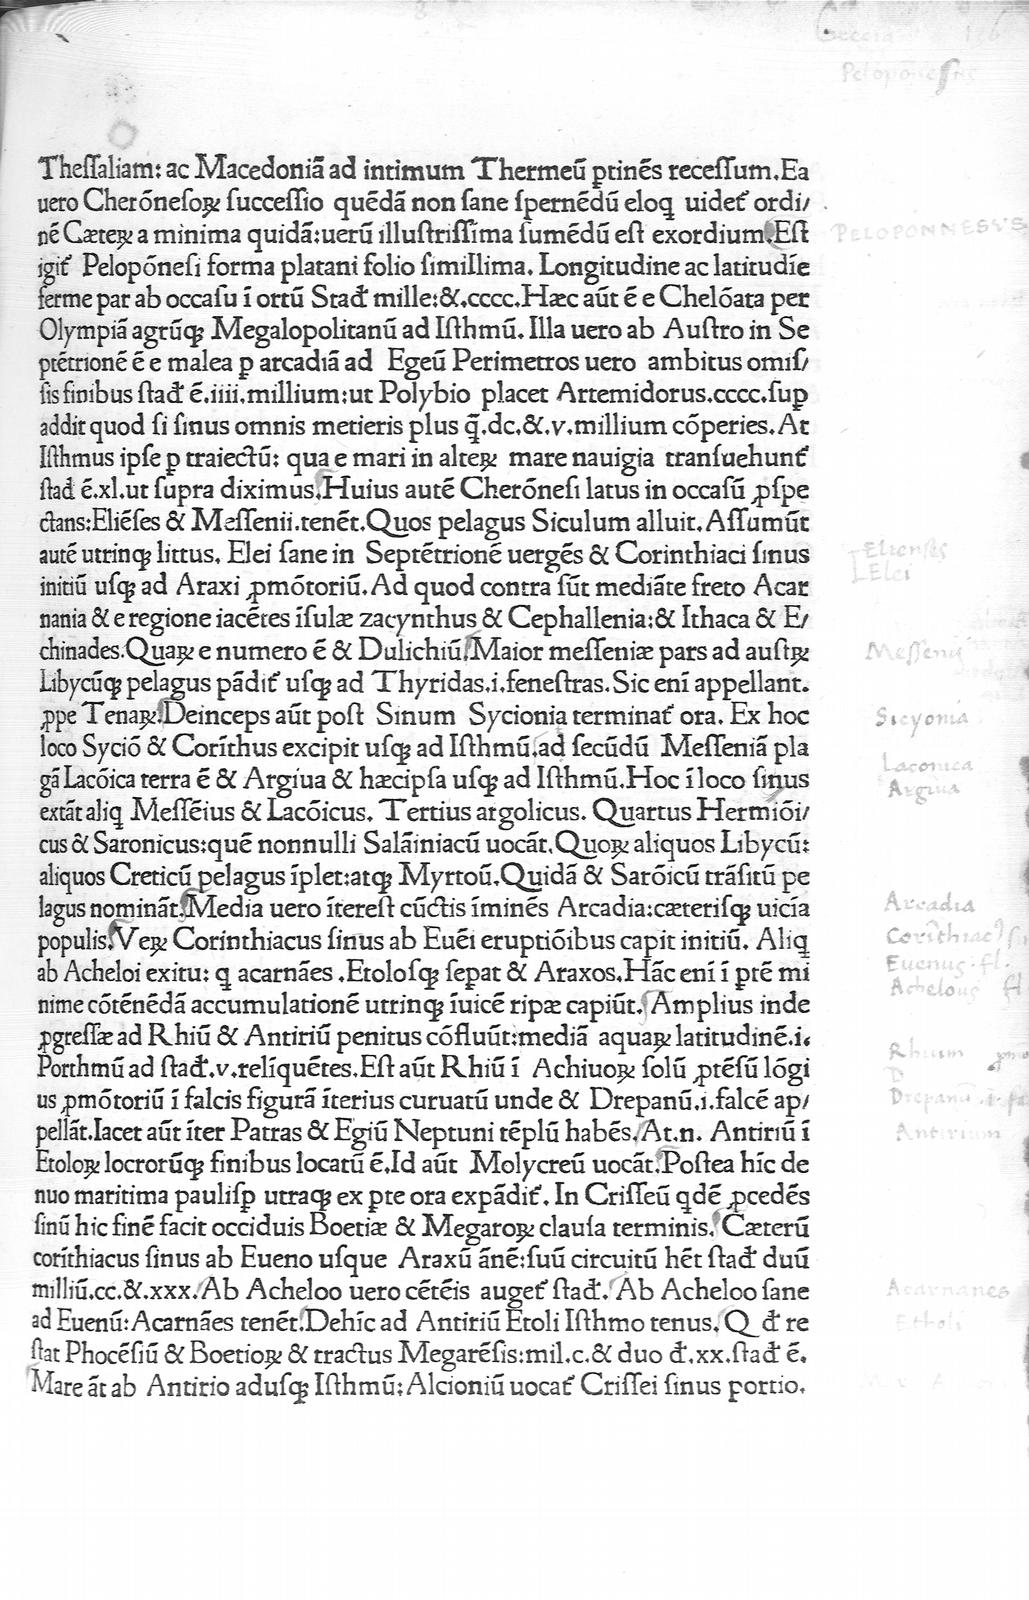 Grecia 136
Pelopōnesus
Theſſaliam: ac Macedoniā ad intimum Thermeū ꝑtinēs receſſum. Ea
uero Cherōneſoꝝ ſucceſſio quēdā non ſane ſpernēdū eloq̨ uidet᷑ ordi/
nē Cæteꝝ a minima quidā: uerū illuſtriſſima ſumēdū eſt exordium. Eſt
PELOPONNESVS
igit᷑ Pelopōneſi forma platani folio ſimillima. Longitudine ac latitudīe
ferme par ab occaſu ī ortū Stad̄ mille: &. cccc. Hæc aūt ē e Chelōata per
Olympiā agrūqꝫ Megalopolitanū ad Iſthmū. Illa uero ab Auſtro in Se
ptētrionē ē e malea ꝑ arcadiā ad Egeū Perimetros uero ambitus omiſ/
ſis finibus ſtad̄ ē. iiii. millium: ut Polybio placet Artemidorus. cccc. ſuꝑ
addit quod ſi ſinus omnis metieris plus q̄. dc. &. v. millium cōperies. At
Iſthmus ipſe ꝑ traiectū: qua e mari in alteꝝ mare nauigia tranſuehunt᷑
ſtad̄ ē. xl. ut ſupra diximus. Huius autē Cherōneſi latus in occaſū ꝓſpe
ctans: Eliēſes & Meſſenii. tenēt. Quos pelagus Siculum alluit. Aſſumūt
autē utrinqꝫ littus. Elei ſane in Septētrionē uergēs & Corinthiaci ſinus
Elienses
Elei
initiū uſqꝫ ad Araxi ꝓmōtoriū. Ad quod contra ſūt mediāte freto Acar
nania & e regione iacētes īſulæ zacynthus & Cephallenia: & Ithaca & E/
chinades. Quaꝝ e numero ē & Dulichiū. Maior meſſeniæ pars ad auſtꝝ
Messenij
Libycūqꝫ pelagus pādit᷑ uſqꝫ ad Thyridas. i. feneſtras. Sic enī appellant.
ꝓpe Tenaꝝ. Deinceps aūt poſt Sinum Sycionia terminat᷑ ora. Ex hoc
Sicyonia
loco Syciō & Corīthus excipit uſqꝫ ad Iſthmū. ad ſecūdū Meſſeniā pla
Laconica
gā Lacōica terra ē & Argiua & hæcipſa uſqꝫ ad Iſthmū. Hoc ī loco ſinus
Argiua
extāt aliq̨ Meſſēius & Lacōicus. Tertius argolicus. Quartus Hermiōi/
cus & Saronicus: quē nonnulli Salāiniacū uocāt. Quoꝝ aliquos Libycū:
aliquos Creticū pelagus īplet: atqꝫ Myrtoū. Quidā & Sarōicū trāſitū pe
lagus nomināt. Media uero ītereſt cūctis īminēs Arcadia: cæteriſqꝫ uicīa
Arcadia
populis. Veꝝ Corinthiacus ſinus ab Euēi eruptiōibus capit initiū. Aliq̨
Corīthiac9
ab Acheloi exitu: q̨ acarnāes. Etoloſqꝫ ſepat & Araxos. Hāc enī ī ꝑtē mi
Euenus. fl.
nime cōtēnēdā accumulationē utrinqꝫ īuicē ripæ capiūt. Amplius inde
Achelous fl
ꝓgreſſæ ad Rhiū & Antiriū penitus cōfluūt: mediā aquaꝝ latitudinē. i.
Porthmū ad ſtad̄. v. relíquētes. Eſt aūt Rhiū ī Achiuoꝝ ſolū ꝓtēſū lōgi
Rhium
us ꝓmōtoriū ī falcis figurā īterius curuatū unde & Drepanū. i. falcē ap/
Drepanū
pellāt. Iacet aūt īter Patras & Egiū Neptuni tēplū habēs. At. n. Antiriū ī
Antirium
Etoloꝝ locrorūqꝫ finibus locatū ē. Id aūt Molycreū uocāt. Poſtea hīc de
nuo maritima pauliſꝑ utraqꝫ ex ꝑte ora expādit᷑. In Criſſeū qdē ꝓcedēs
ſinū hic finē facit occiduis Boetiæ & Megaroꝝ clauſa terminis. Cæterū
corīthiacus ſinus ab Eueno uſque Araxū ānē: ſuū circuitū hēt ſtad̄ duū
milliū. cc. &. xxx. Ab Acheloo uero cētēis auget᷑ ſtad̄. Ab Acheloo ſane
Acarnanes
ad Euenū: Acarnāes tenēt. Dehīc ad Antiriū Etoli Iſthmo tenus. Q d̄ re
Etholi
ſtat Phocēſiū & Boetioꝝ & tractus Megarēſis: mil. c. & duo d̄. xx. ſtad̄ ē.
Mare āt ab Antirio aduſqꝫ Iſthmū: Alcioniū uocat᷑ Criſſei ſinus portio.